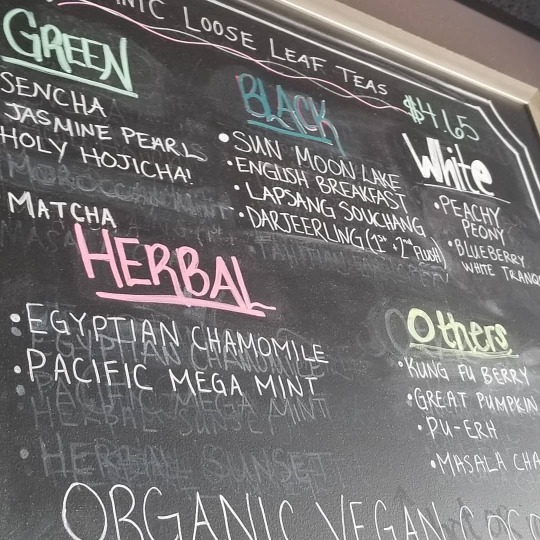 NIC LOOSE LEAF TEAS
$4.65
GREEN
SENCHA
JASMINE PEARLS
HOLY HOJICHA!
MATCHA
BLACK
• SUN MOON LAKE
• ENGLISH BREAKFAST
• LAPSANG SOUCHANG
• DARJEERLING (1st · 2nd FLUSH)
White
• PEACHY
PEONY
• BLUEBERRY
WHITE TRANQ
HERBAL
• EGYPTIAN CHAMOMILE
• PACIFIC MEGA MINT
HERBAL SUNSET
Others
• KUNG FU BERRY
• GREAT PUMPKIN
• PU-ERH
• MASALA CHA
ORGANIC VEGAN COCO